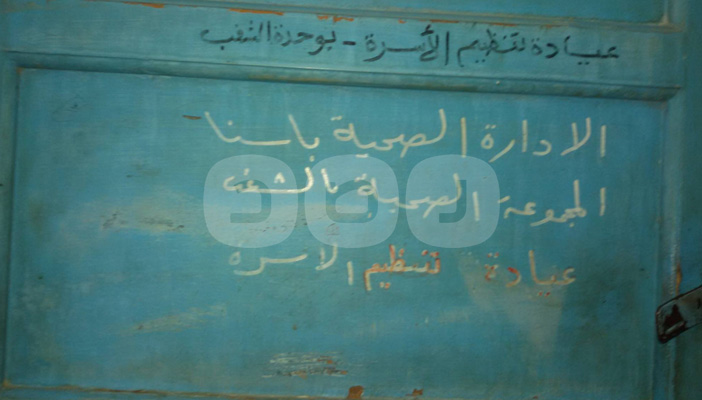 عيادة تنظيم الأسرة - بوحدة الشغب
الادارة الصحية باسنا
المجموعة الصحية بالشغب
عيادة تنظيم الأسرة